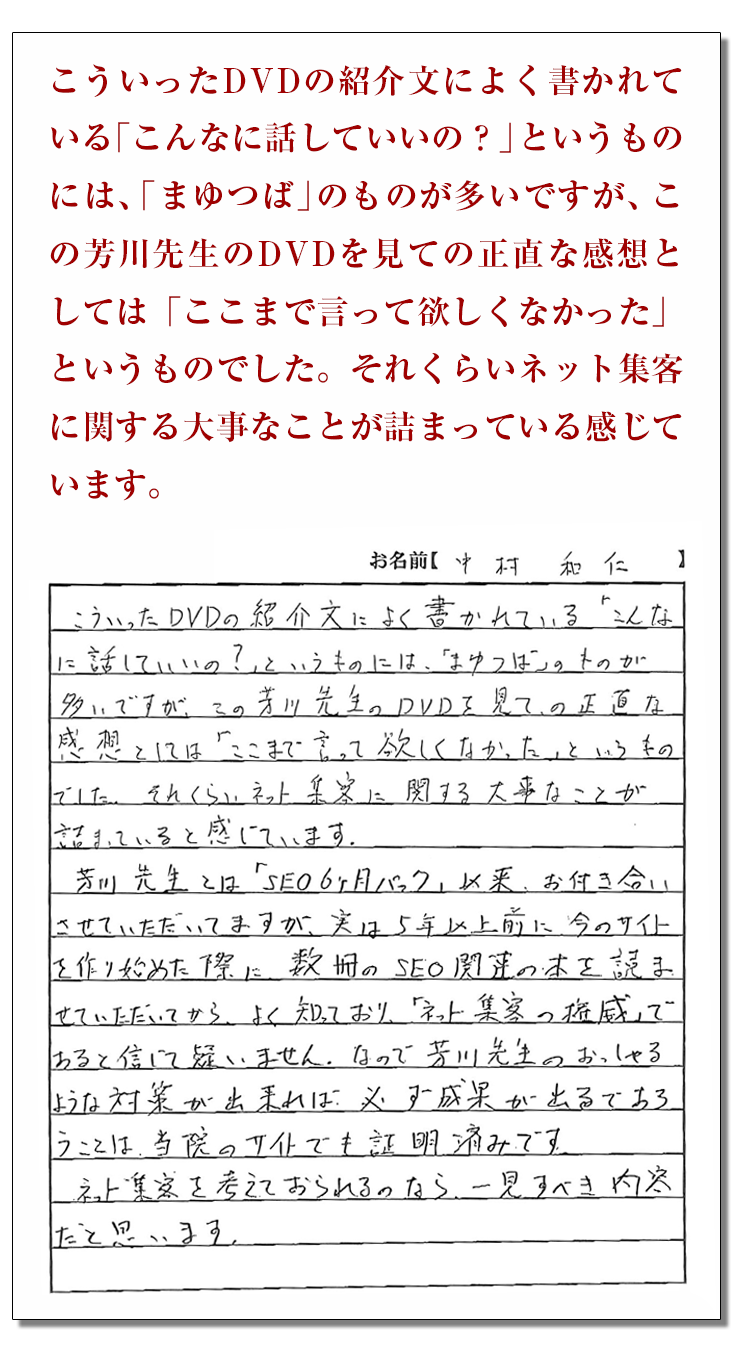 こういったDVDの紹介文によく書かれて
いる「こんなに話していいの？」というもの
には、「まゆつば」のものが多いですが、こ
の芳川先生のDVDを見ての正直な感想と
しては「ここまで言って欲しくなかった」
というものでした。それくらいネット集客
に関する大事なことが詰まっている感じて
います。
お名前【 中村 和仁 】
こういったDVDの紹介文によく書かれている「こんな
に話していいの？」というものには、「まゆつば」のものが
多いですが、この芳川先生のDVDを見ての正直な
感想としては「ここまで言って欲しくなかった」というもの
でした。それくらいネット集客に関する大事なことが
詰まっていると感じています。
芳川先生とは「SEO6ヶ月パック」以来、お付き合い
させていただいてますが、実は5年以上前に今のサイト
を作り始めた際に、数冊のSEO関連の本を読ま
せていただいてから、よく知っており、「ネット集客の権威」で
あると信じて疑いません。なので芳川先生のおっしゃる
ような対策が出来れば、必ず成果が出るであろ
うことは、当院のサイトでも証明済みです。
ネット集客を考えておられるのなら、一見すべき内容
だと思います。